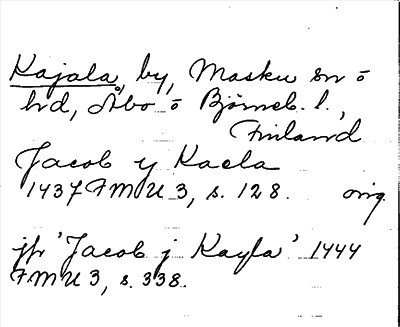 Kajala, by, Masku sn o
hd, Åbo o Björneb. l.,
Finland
Jacob y Kaela
1437 FMU 3, s. 128. orig.
jfr 'Jacob j Kayla' 1444
FMU 3, s. 338.